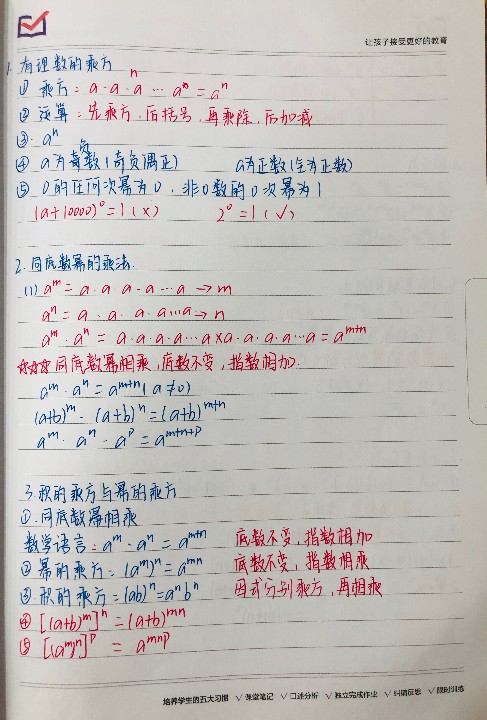 让孩子接受更好的教育
1. 有理数的乘方
① 乘方: a·a·a ⋯ aⁿ = aⁿ
n
② 运算: 先乘方, 后括号, 再乘除, 后加减
③. aⁿ
④ a为负数(奇负偶正) a为正数(全为正数)
⑤ 0的任何次幂为0, 非0数的0次幂为1
(a+10000)⁰=1(×) 2⁰=1(√)
2. 同底数幂的乘法.
(1) aᵐ = a·a·a·a…a → m
aⁿ = a·a·a·a…a → n
aᵐ·aⁿ = a·a·a·a…a×a·a·a·a…a = aᵐ⁺ⁿ
☆☆☆同底数幂相乘, 底数不变, 指数相加.
aᵐ·aⁿ=aᵐ⁺ⁿ(a≠0)
(a+b)ᵐ·(a+b)ⁿ=(a+b)ᵐ⁺ⁿ
aᵐ·aⁿ·aᵖ=aᵐ⁺ⁿ⁺ᵖ
3. 积的乘方与幂的乘方
①. 同底数幂相乘
数学语言: aᵐ·aⁿ = aᵐ⁺ⁿ 底数不变, 指数相加
② 幂的乘方: (aᵐ)ⁿ=aᵐⁿ 底数不变, 指数相乘
③. 积的乘方: (ab)ⁿ=aⁿbⁿ 因式分别乘方, 再相乘
④ [(a+b)ᵐ]ⁿ=(a+b)ᵐⁿ
⑤ [(aᵐ)ⁿ]ᵖ = aᵐⁿᵖ
培养学生的五大习惯 √课堂笔记 √口述分析 √独立完成作业 √纠错反思 √限时训练